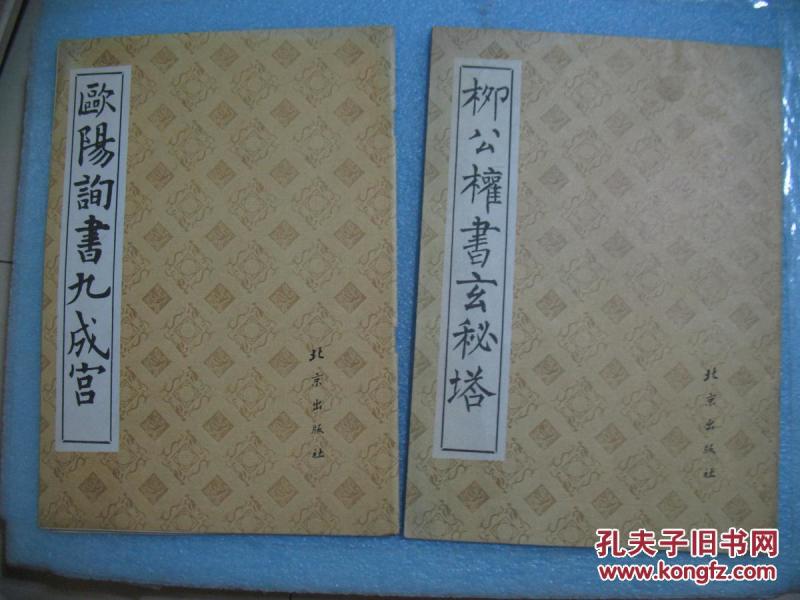 歐陽詢書九成宮
北京出版社
柳公權書玄秘塔
北京出版社
孔夫子旧书网
www.kongfz.com